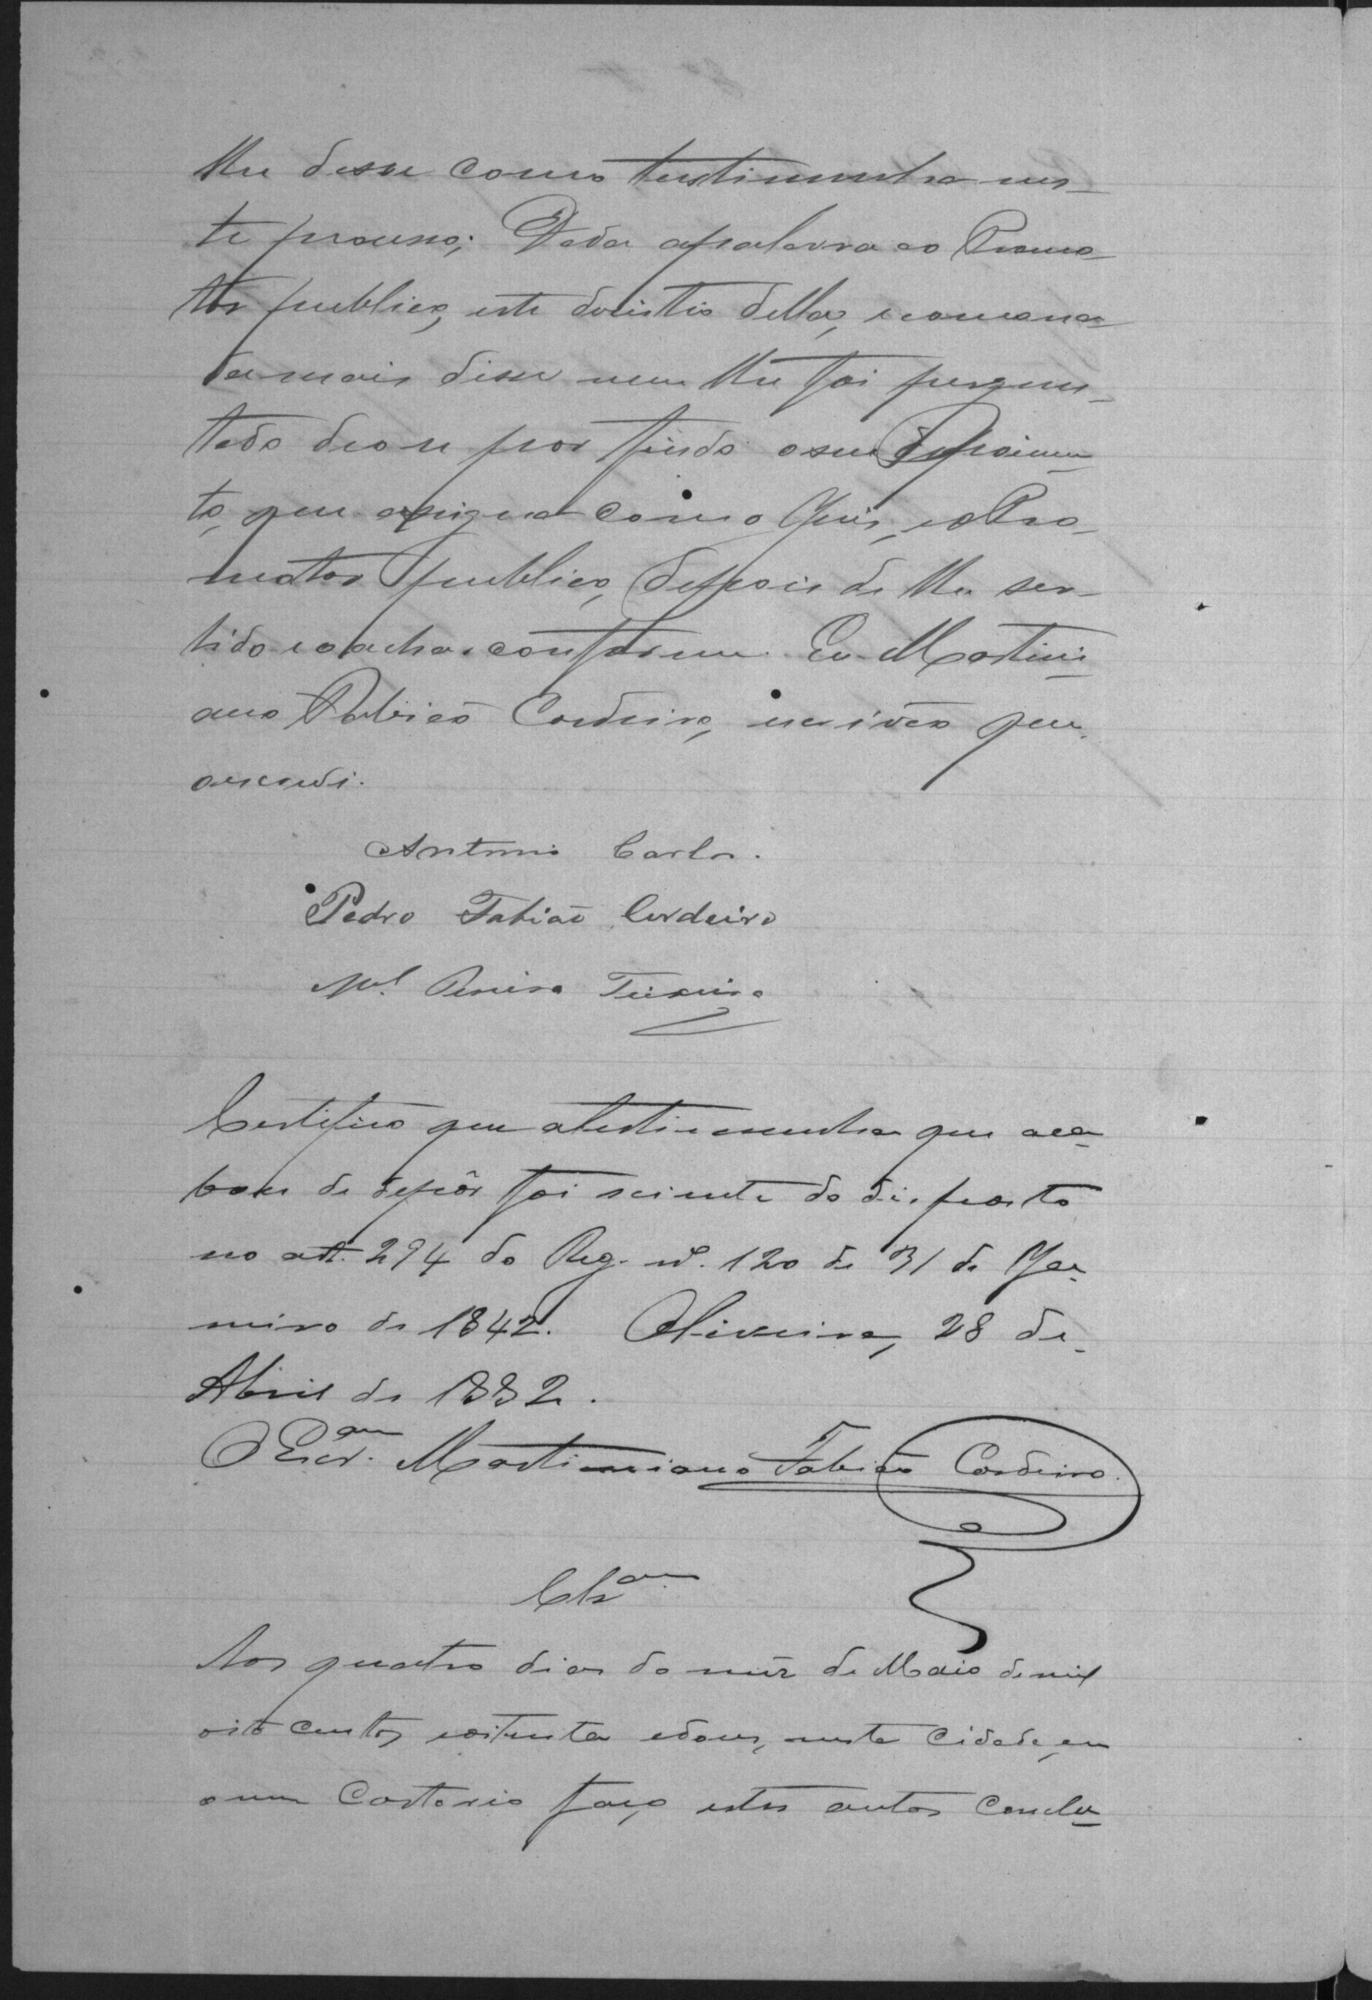 lhe désse como testimunha nes-
te processo; Dada apalavra ao Promo-
tor publico, este desistio della, e como na-
da mais disse nem lhe foi pergun-
tado deose por findo oseu depoimen-
to, que assigna com o Juis, e o Pro-
motor publico, depois de lhe ser
lido e o achar conforme. Eu Martini-
ano Fabião Cordeiro, escrivão que
oescrevi.
Antonio Carlos.
Pedro Fabião Cordeiro
Mel. Pereira Teixeira
Certifico que atestimunha que aca-
bou de depôr foi sciente do disposto
no art. 294 do Reg. nº. 120 de 31 de Ja-
neiro de 1842. Oliveira, 28 de
Abril de 1882.
O Escram. Martiniano Fabião Cordeiro.
Clzam
Aos quatro dias do mêz de Maio de mil
oito centos eoitenta edous, nesta Cidade, em
o meu Cartorio faço estes autos conclu-